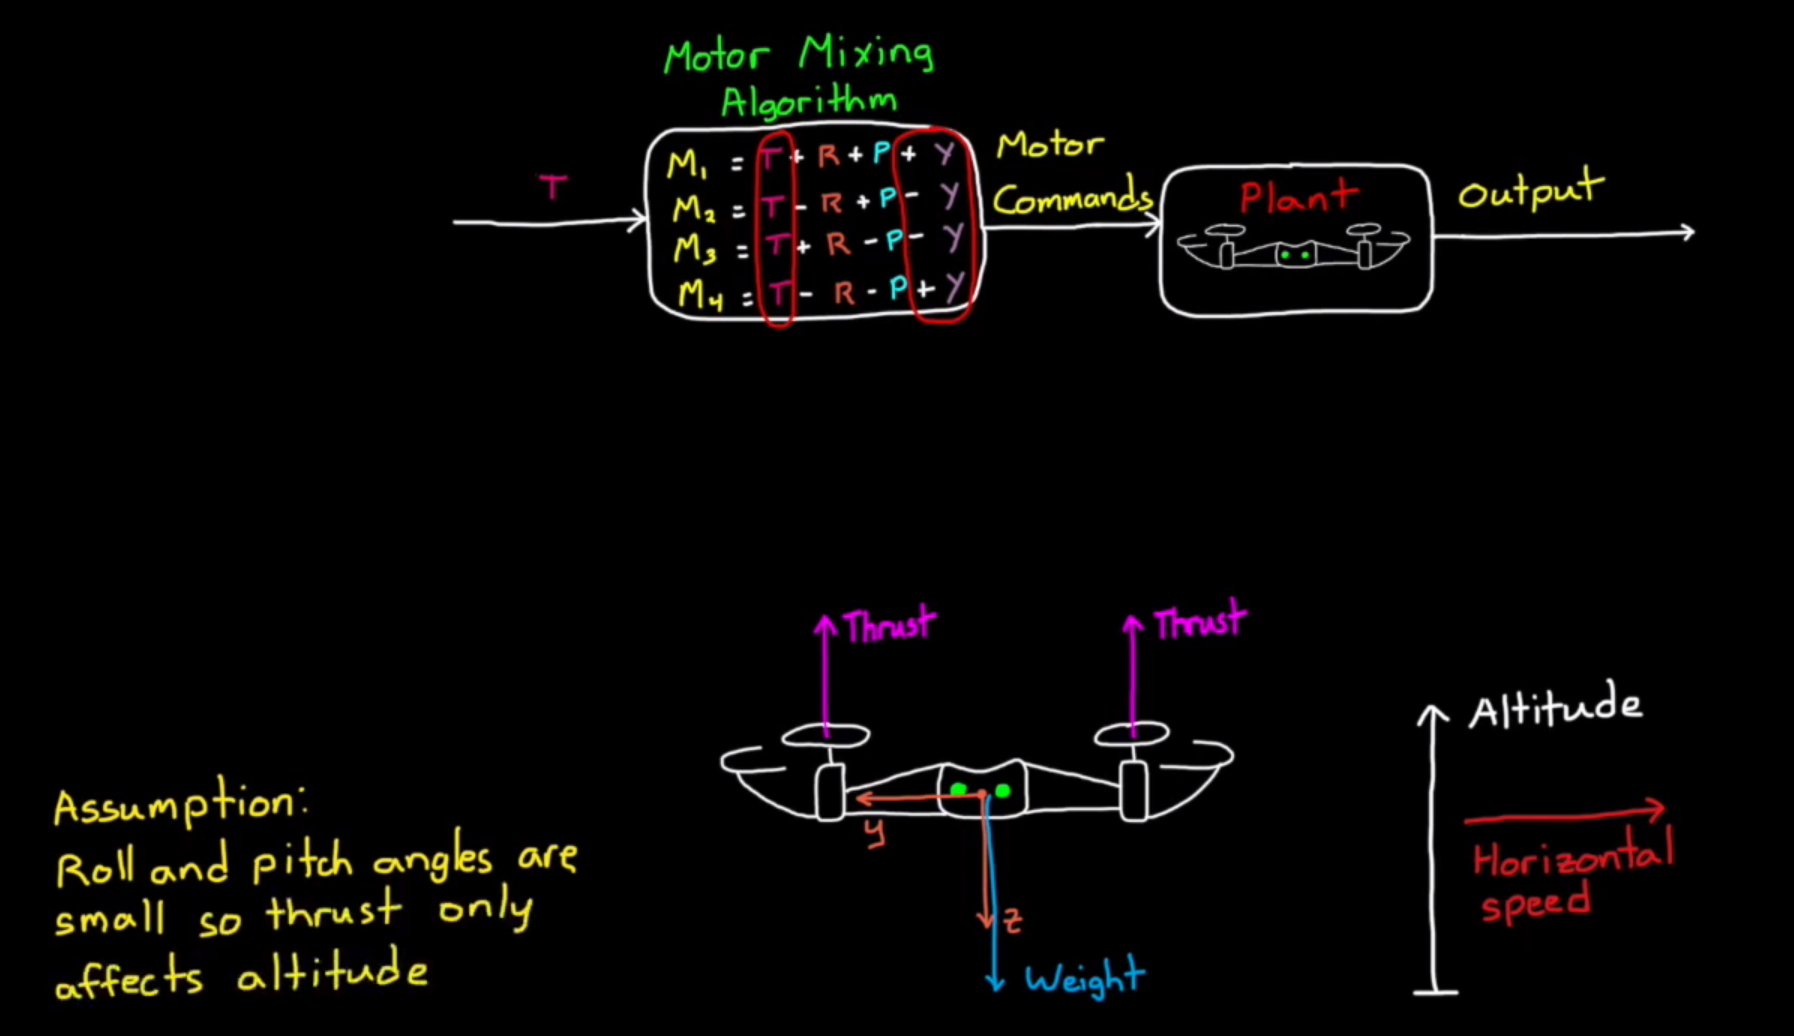 Motor Mixing
Algorithm
T
M₁ = T + R + P + Y
M₂ = T - R + P - Y
M₃ = T + R - P - Y
M₄ = T - R - P + Y
Motor
Commands
Plant
Output
Thrust
Thrust
y
z
Weight
Altitude
Horizontal
speed
Assumption:
Roll and pitch angles are
small so thrust only
affects altitude